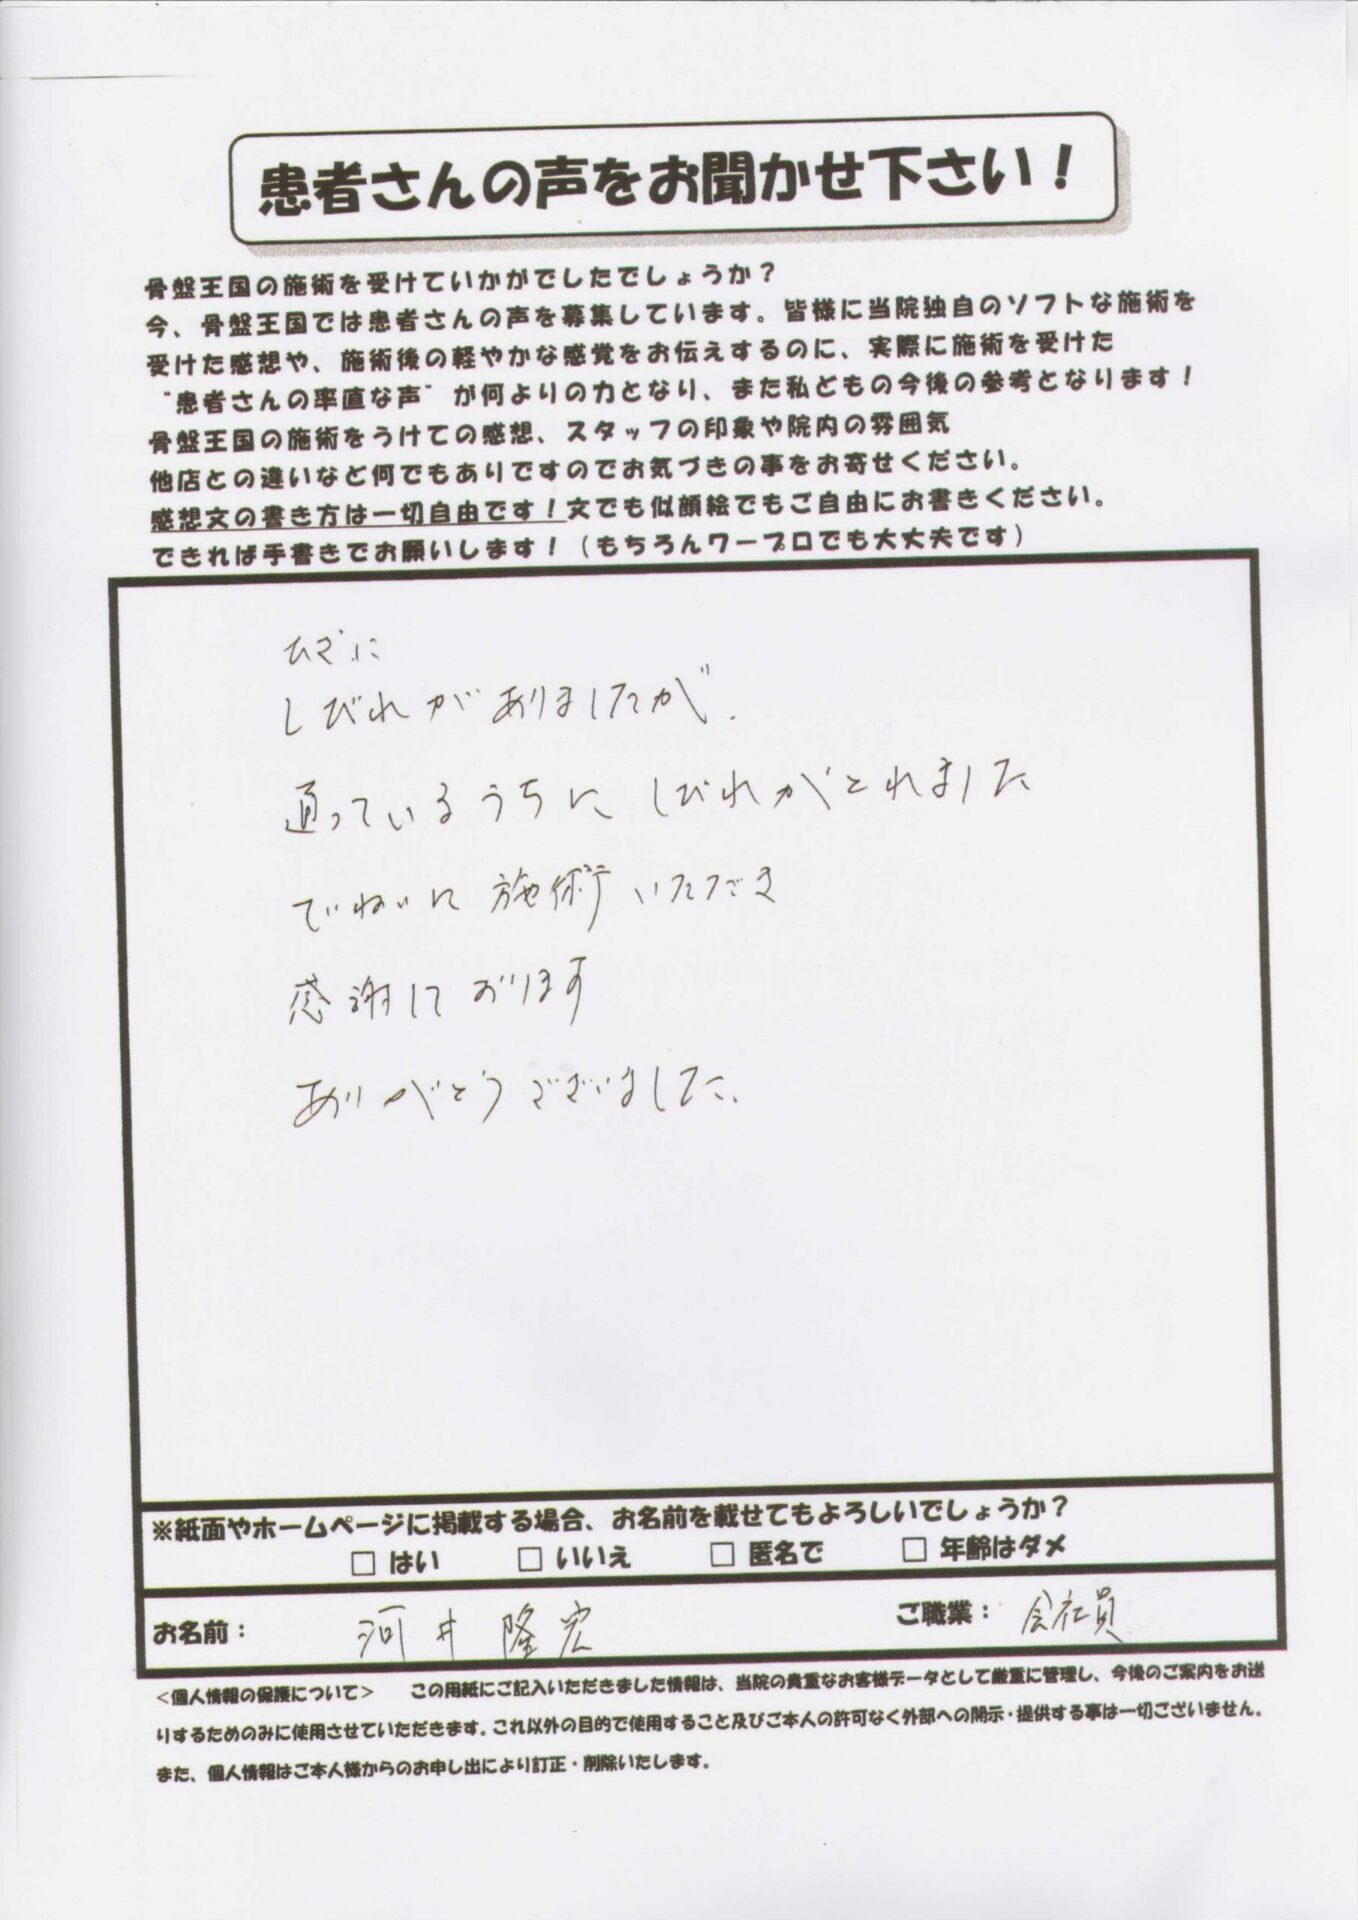 患者さんの声をお聞かせ下さい！
骨盤王国の施術を受けていかがでしたでしょうか？
今、骨盤王国では患者さんの声を募集しています。皆様に当院独自のソフトな施術を
受けた感想や、施術後の軽やかな感覚をお伝えするのに、実際に施術を受けた
"患者さんの率直な声"が何よりの力となり、また私どもの今後の参考となります！
骨盤王国の施術をうけての感想、スタッフの印象や院内の雰囲気
他店との違いなど何でもありですのでお気づきの事をお寄せください。
感想文の書き方は一切自由です！文でも似顔絵でもご自由にお書きください。
できれば手書きでお願いします！（もちろんワープロでも大丈夫です）
ひざに
しびれがありましたが、
通っているうちに しびれがとれました
ていねいに 施術いただき
感謝しております
ありがとうございました。
※紙面やホームページに掲載する場合、お名前を載せてもよろしいでしょうか？
□ はい □ いいえ □ 匿名で □ 年齢はダメ
お名前： 河井 隆宏 ご職業： 会社員
＜個人情報の保護について＞ この用紙にご記入いただきました情報は、当院の貴重なお客様データとして厳重に管理し、今後のご案内をお送
りするためのみに使用させていただきます。これ以外の目的で使用すること及びご本人の許可なく外部への開示・提供する事は一切ございません。
また、個人情報はご本人様からのお申し出により訂正・削除いたします。